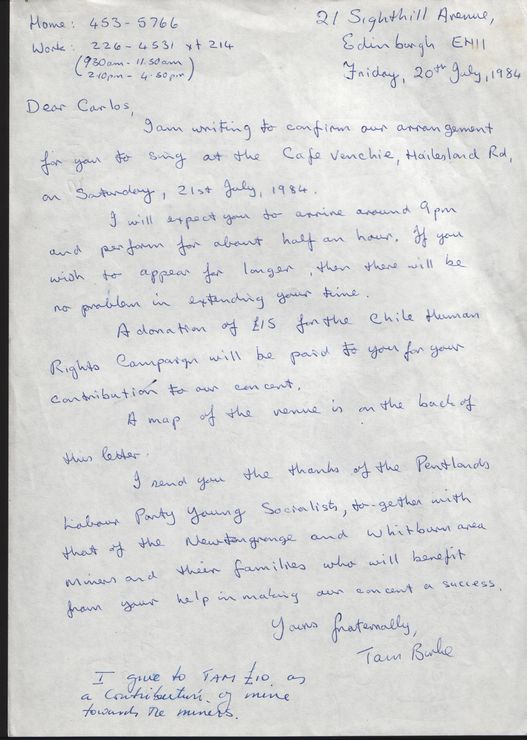 Home: 453-5766
Work: 226-4531 xt 214
(9.30am - 11.50am
2.10pm - 4.50pm)
21 Sighthill Avenue,
Edinburgh EH11
Friday, 20th July, 1984
Dear Carlos,
I am writing to confirm our arrangement
for you to sing at the Cafe Venchie, Hailesland Rd,
on Saturday, 21st July, 1984.
I will expect you to arrive around 9pm
and perform for about half an hour. If you
wish to appear for longer, then there will be
no problem in extending your time.
A donation of £15 for the Chile Human
Rights Campaign will be paid to you for your
contribution to our concert.
A map of the venue is on the back of
this letter.
I send you the thanks of the Pentlands
Labour Party Young Socialists, to-gether with
that of the Newtongrange and Whitburn area
Miners and their families who will benefit
from your help in making our concert a success.
Yours fraternally,
Tam Burke
I give to TAM £10 as
a contribution of mine
towards the miners.